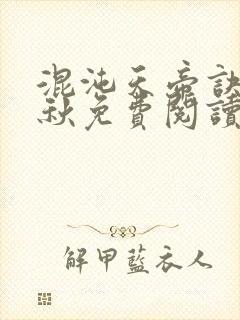 混沌天帝訣
秋免費閱讀
解甲藍衣人